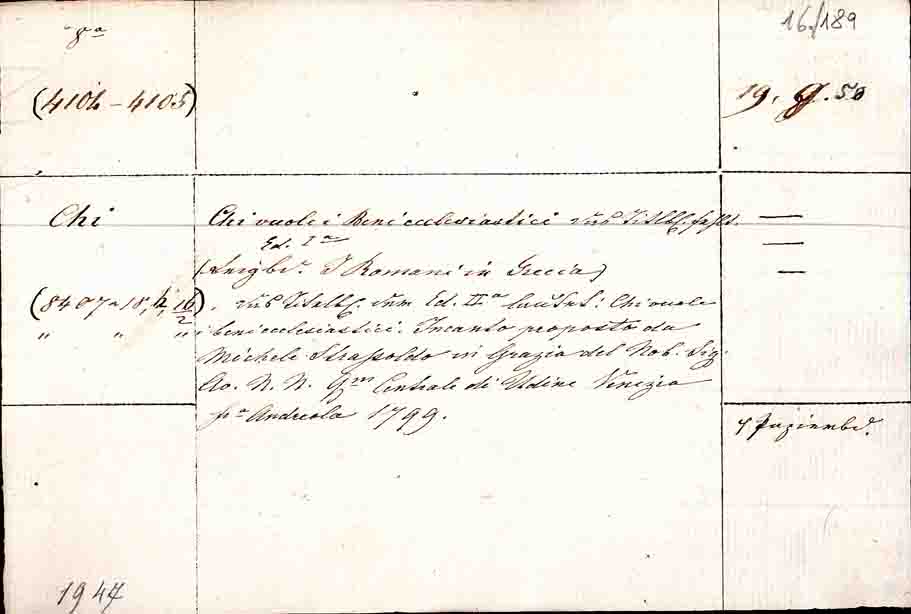 8°
16/189
(4104 - 4105)
19. G. 50
Chi
Chi vuole i Beni ecclesiastici das Titelbl. fehlt. —
Ed. I.a —
(Angbd. I Romani in Grecia) —
(8407 a 18, h, 16/2)
das Titelbl. zum Ed. II.a lautet: Chi vuole
" " " i beni ecclesiastici. Incanto proposto da
Michele Strasoldo in Grazia del Nob. Sig.
Co. N. N. Centrale di Udine Venezia
p.a Andreola 1799.
1 Papierbd.
1947